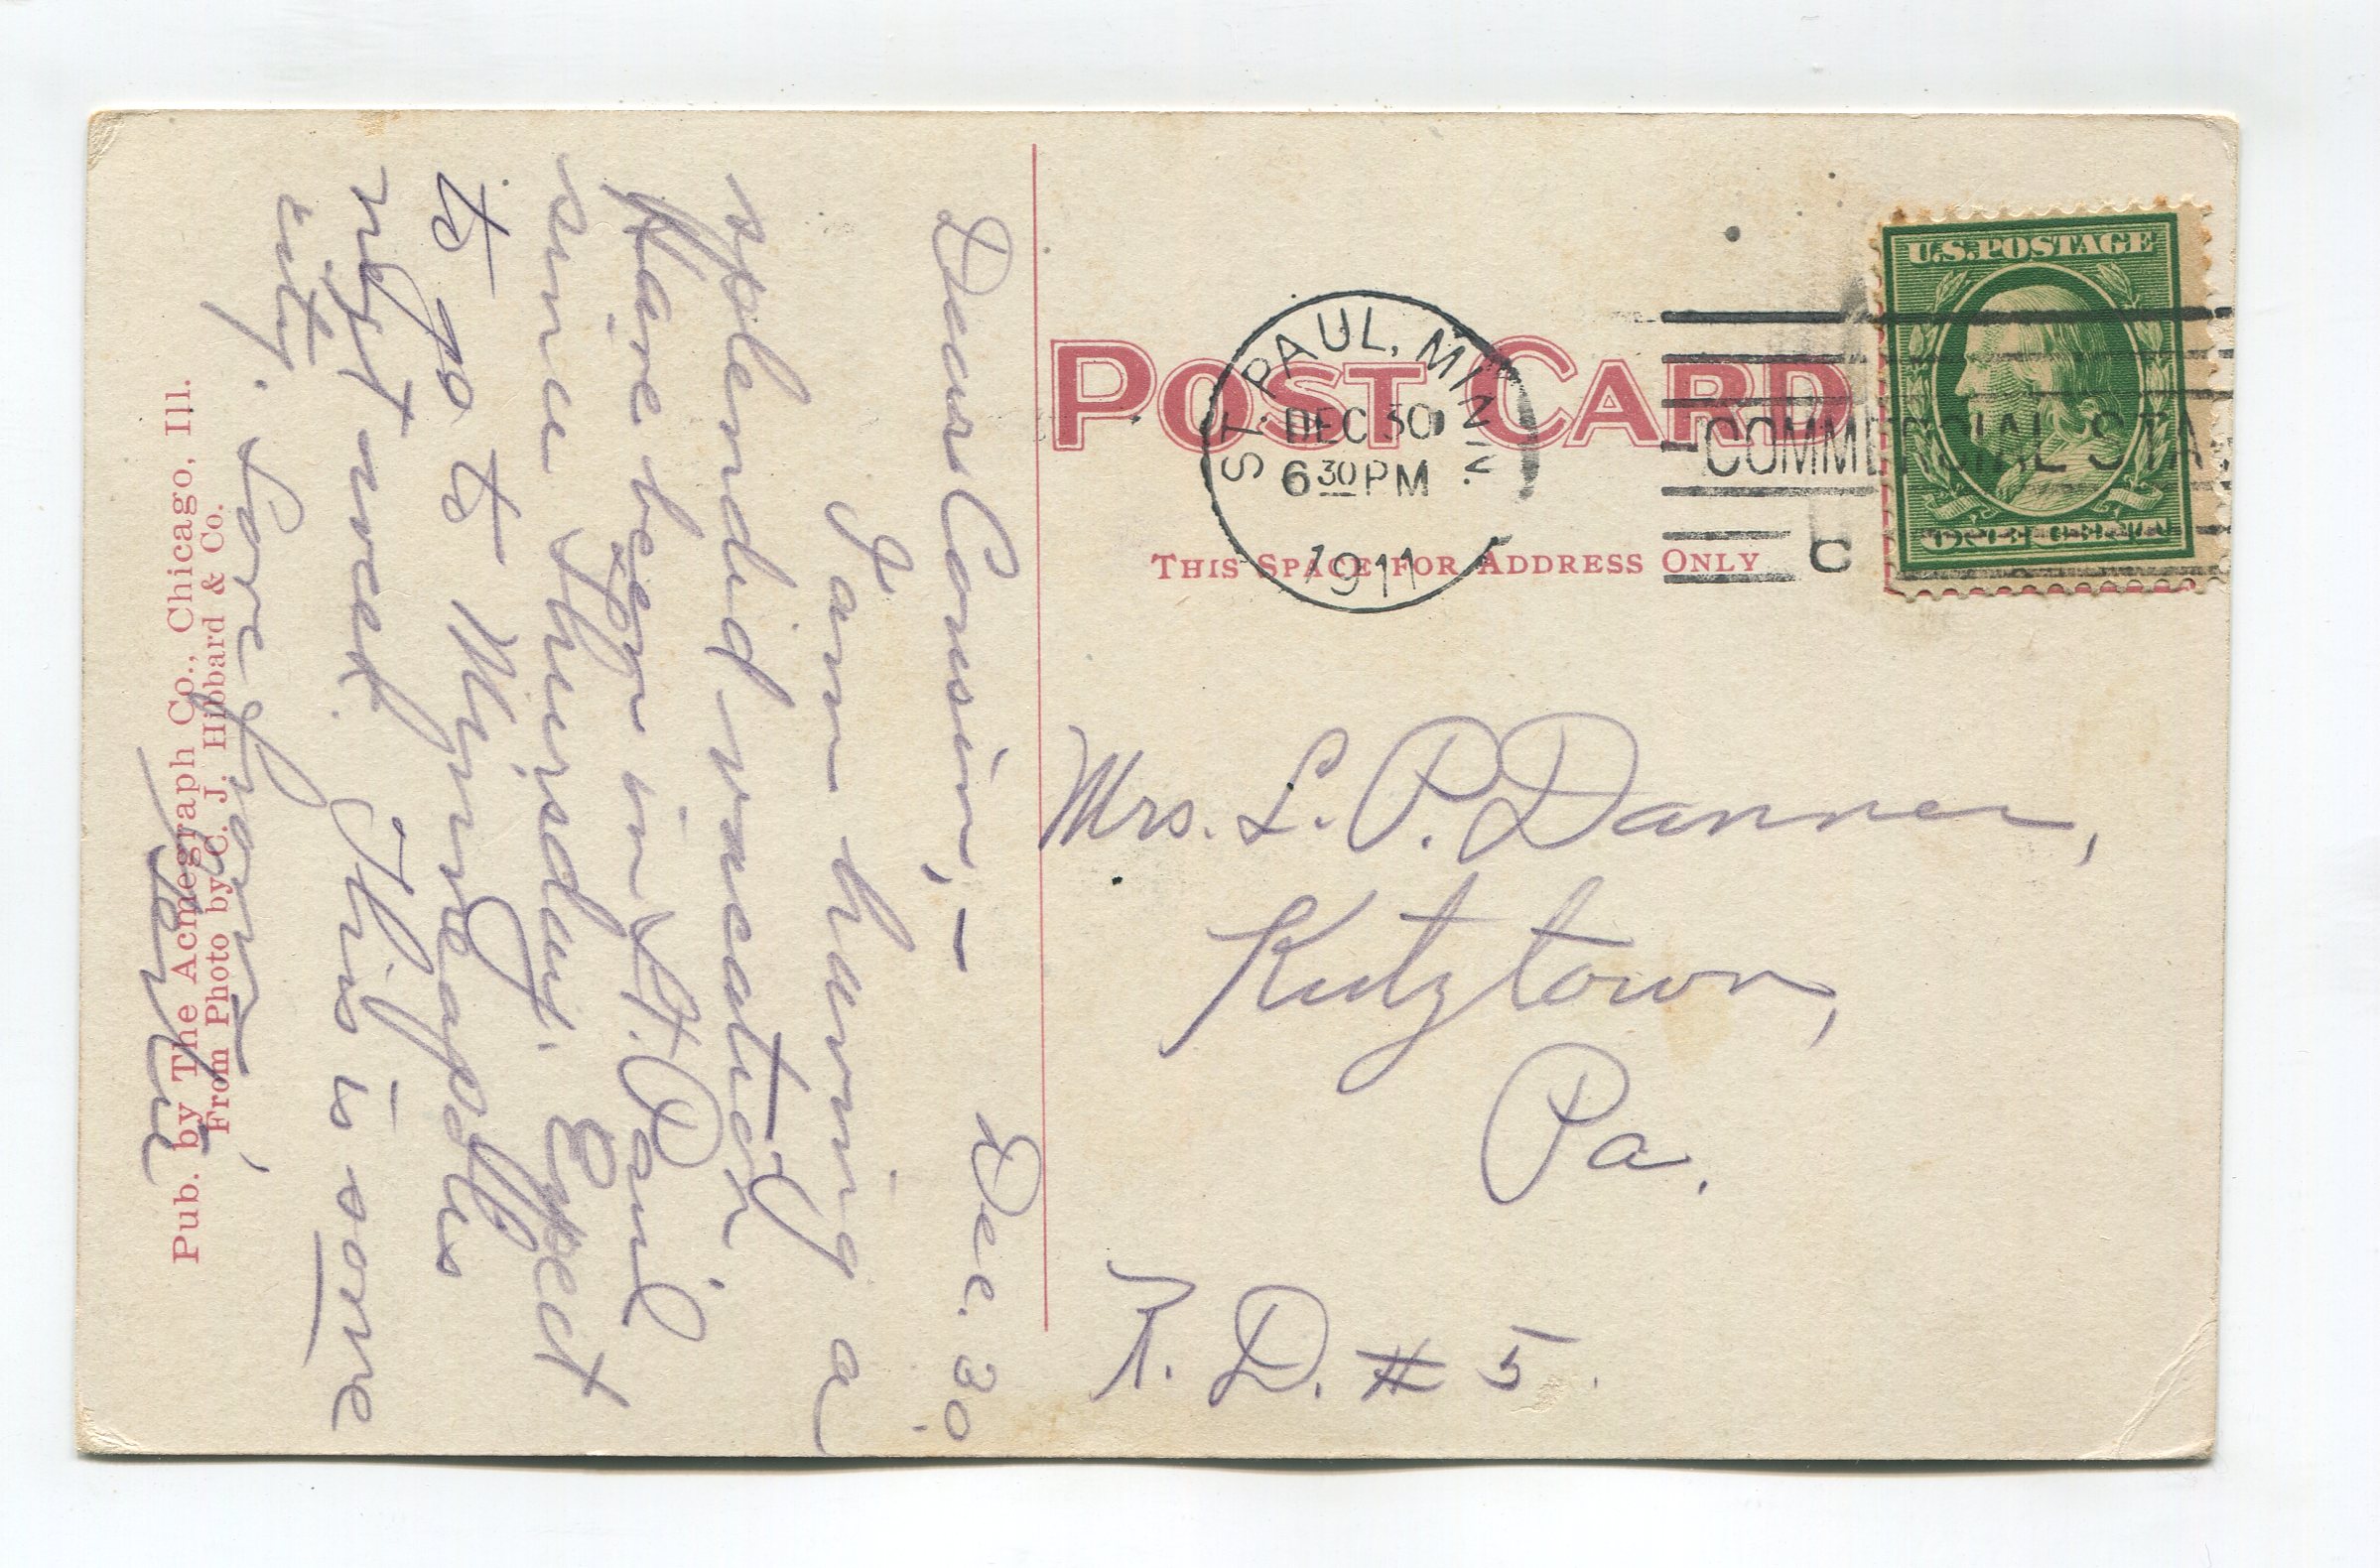 Dear Cousin,— Dec. 30.
I am having a
splendid vacation
Have been in St. Paul
since Thursday. Expect
to go to Minneapolis
next week. This is some
city. Love to you
Pub. by The Acmegraph Co., Chicago, Ill.
From Photo by C. J. Hibbard & Co.
POST CARD
THIS SPACE FOR ADDRESS ONLY
ST. PAUL, MINN.
DEC 30
6 30 PM
1911
COMMERCIAL STA.
C
U.S. POSTAGE
ONE CENT
Mrs. L. P. Danner,
Kutztown,
Pa.
R. D. # 5.